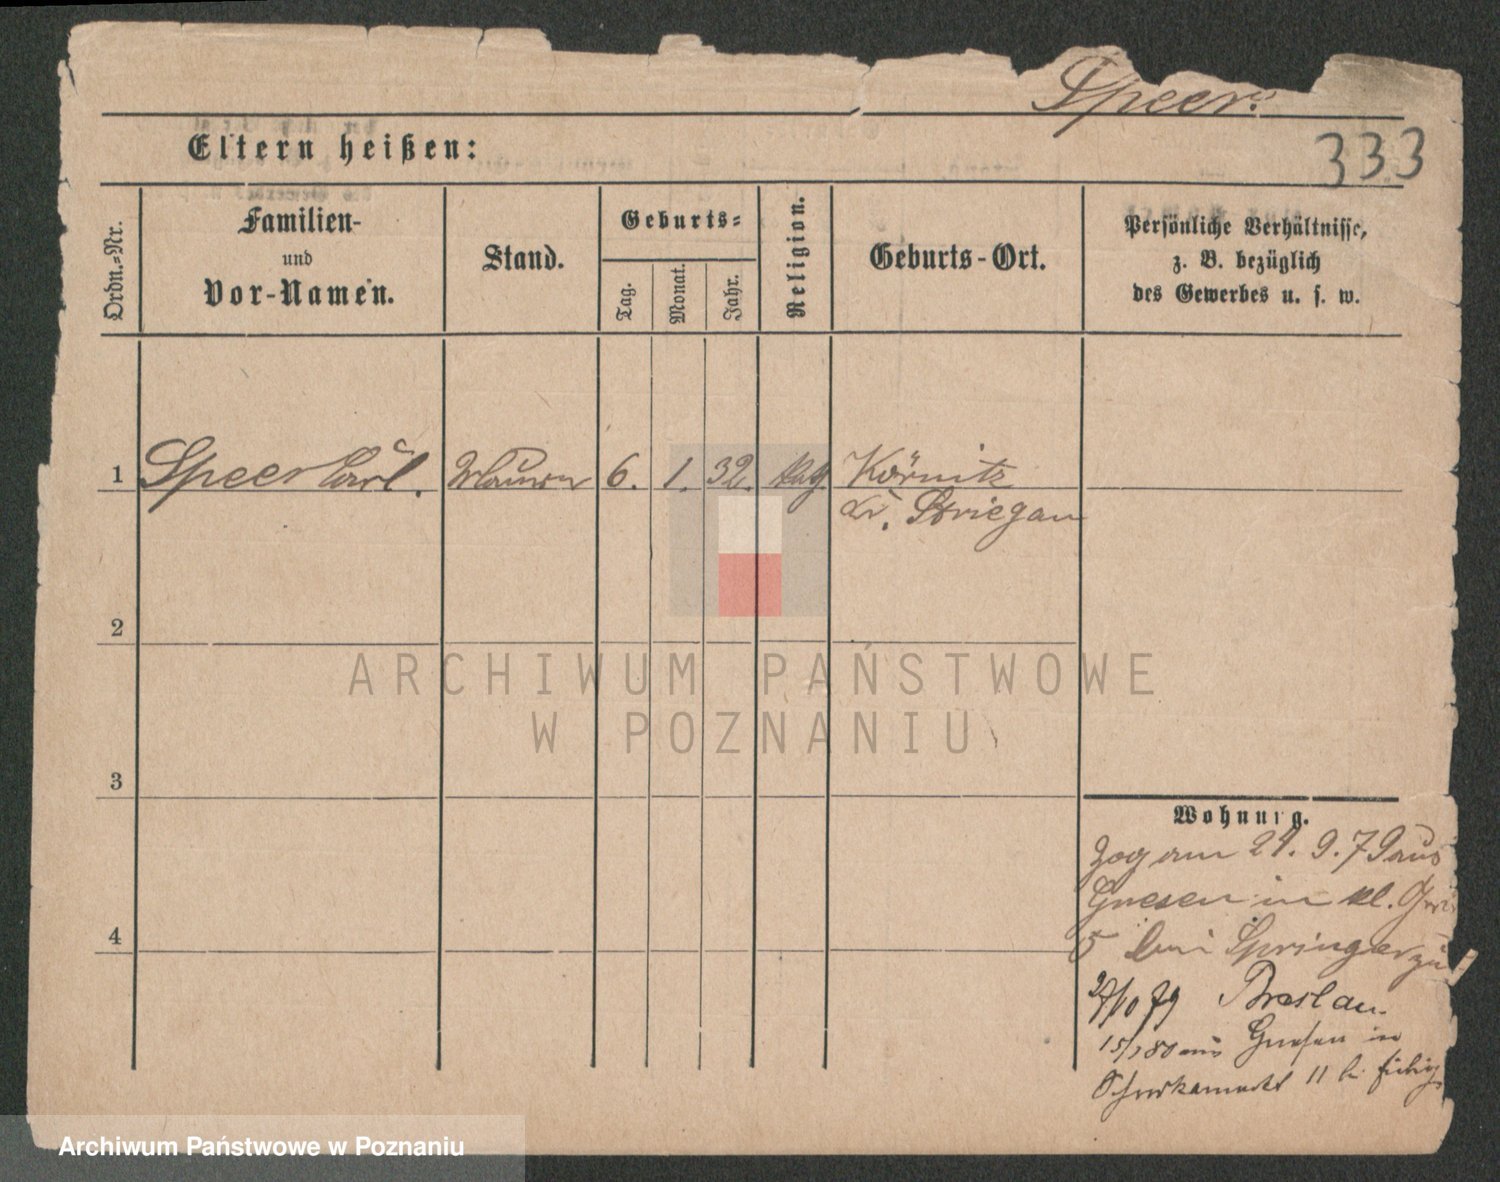 Speer.
333
Eltern heißen:
Ordn.-Nr.
Familien-
und
Vor-Namen.
Stand.
Geburts-
Tag.
Monat.
Jahr.
Religion.
Geburts-Ort.
Persönliche Verhältnisse,
z. B. bezüglich
des Gewerbes u. s. w.
1 Speer Carl. Maurer 6. 1. 32. Körnitz
Kr. Striegau
2
3
4
Wohnung.
Zog am 24. 9. 79 aus
Gnesen in kl.
5 bei Springer
27/10 79 Breslau.
aus Gnesen in
11 b.
ARCHIWUM PAŃSTWOWE
W POZNANIU
Archiwum Państwowe w Poznaniu